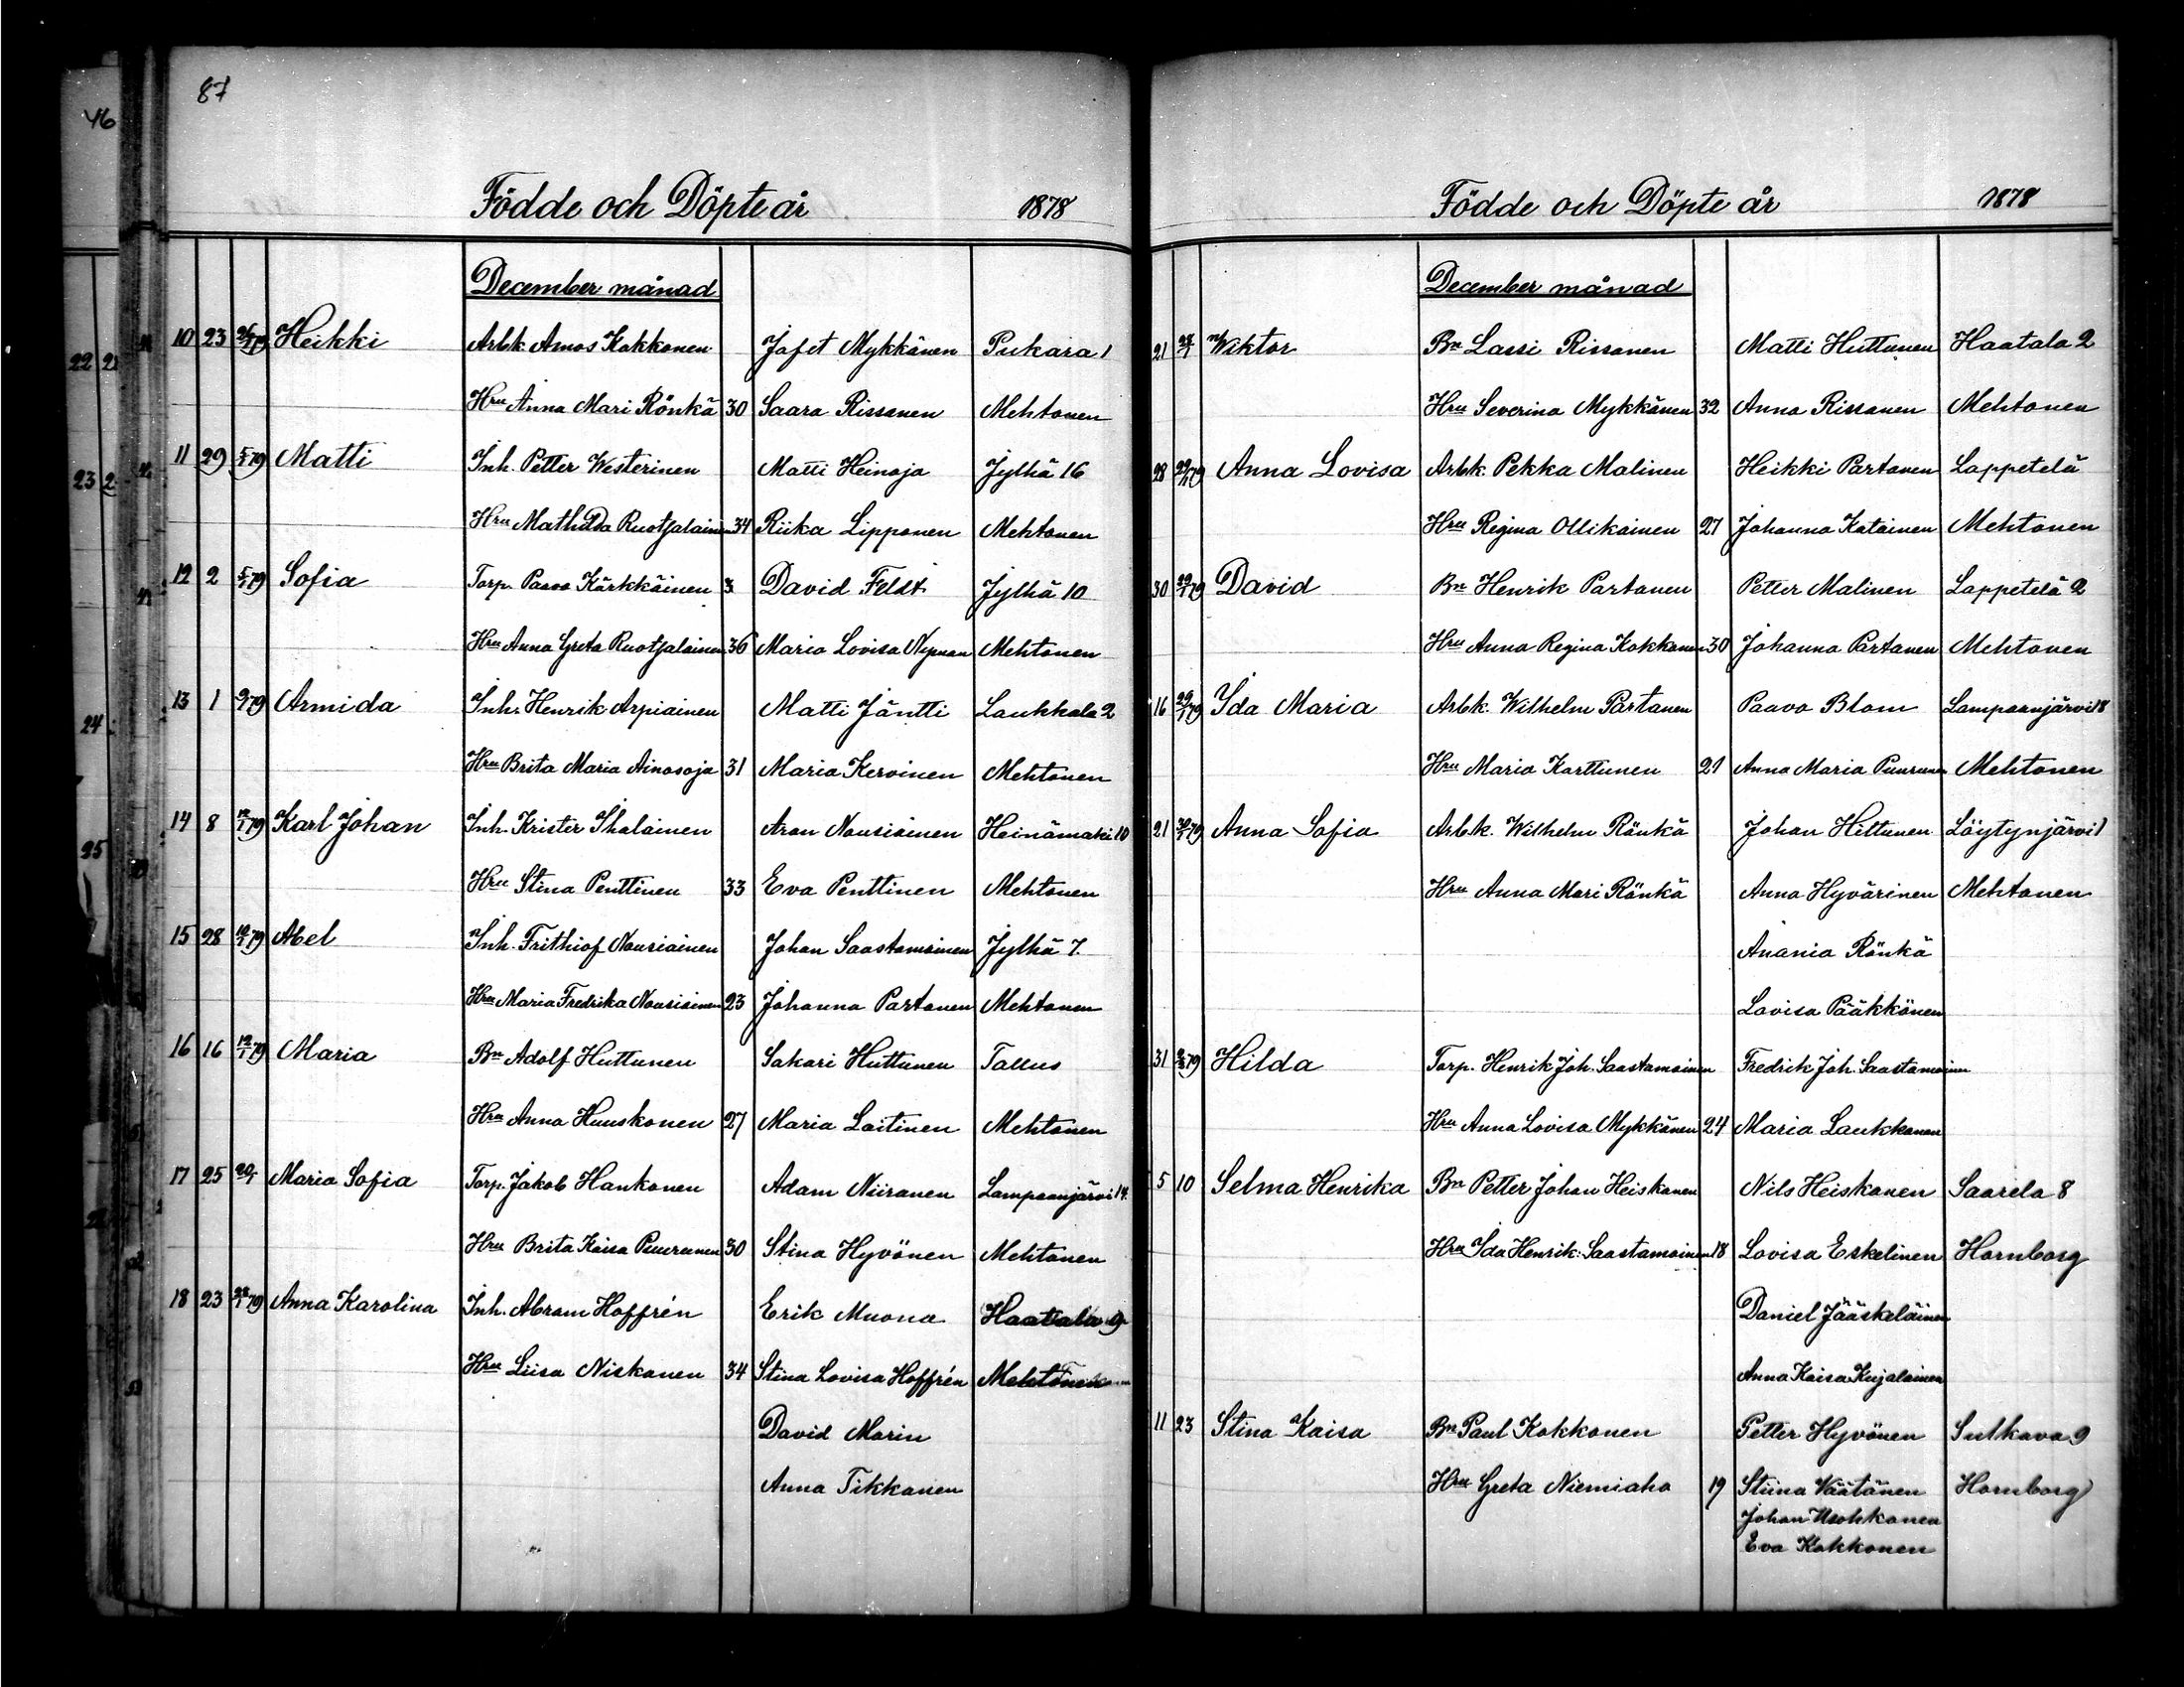 87
46
Födde och Döpte år 1878
December månad
10 23 Heikki Arbk. Amos Kokkonen Jafet Mykkänen Pukara 1
Hru Anna Mari Rönkä 30 Saara Rissanen Mehtonen
11 29 5/1 79 Matti Inh. Petter Westerinen Matti Heinoja Jylhä 16
Hru Mathilda Ruotsalainen 34 Riika Lipponen Mehtonen
12 2 5/1 79 Sofia Torp. Paavo Kärkkäinen David Feldt Jylhä 10
Hru Anna Greta Ruotsalainen 36 Maria Lovisa Nyman Mehtonen
13 1 79 Armida Inh. Henrik Arpiainen Matti Jäntti Laukkala 2
Hru Brita Maria Ainasoja 31 Maria Kervinen Mehtonen
14 8 79 Karl Johan Inh. Krister Ihalainen Aron Nousiainen Heinämäki 10
Hru Stina Penttinen 33 Eva Penttinen Mehtonen
15 28 79 Abel Inh. Frithiof Nousiainen Johan Saastamoinen Jylhä 7.
Hru Maria Fredrika Nousiainen 23 Johanna Partanen Mehtonen
16 16 79 Maria Bn Adolf Huttunen Sakari Huttunen Tallus
Hru Anna Huuskonen 27 Maria Laitinen Mehtonen
17 25 20/1 Maria Sofia Torp. Jakob Hankonen Adam Niiranen Lampaanjärvi 14.
Hru Brita Kaisa Puurunen 30 Stina Hyvönen Mehtonen
18 23 79 Anna Karolina Inh. Abram Hoffrén Erik Muona Haatala 9
Hru Liisa Niskanen 34 Stina Lovisa Hoffrén Mehtonen
David Morin
Anna Tikkanen
Födde och Döpte år 1878
December månad
21 Wiktor Bn Lassi Rissanen Matti Huttunen Haatala 2
Hru Severina Mykkänen 32 Anna Rissanen Mehtonen
28 79 Anna Lovisa Arbk. Pekka Malinen Heikki Partanen Lappetelä
Hru Regina Ollikainen 27 Johanna Katainen Mehtonen
30 79 David Bn Henrik Partanen Petter Malinen Lappetelä 2
Hru Anna Regina Kokkonen 30 Johanna Partanen Mehtonen
16 79 Ida Maria Arbk. Wilhelm Partanen Paavo Blom Lampaanjärvi 18
Hru Maria Karttunen 21 Anna Maria Puurunen Mehtonen
21 79 Anna Sofia Arbk. Wilhelm Rönkä Johan Hiltunen Löytynjärvi 1
Hru Anna Mari Rönkä Anna Hyvärinen Mehtonen
Anania Rönkä
Lovisa Pääkkönen
31 79 Hilda Torp. Henrik Joh. Saastamoinen Fredrik Joh. Saastamoinen
Hru Anna Lovisa Mykkänen 24 Maria Laukkanen
5 10 Selma Henrika Bn Petter Johan Heiskanen Nils Heiskanen Saarela 8
Hru Ida Henrik: Saastamoinen 18 Lovisa Eskelinen Hornborg
Daniel Jääskeläinen
Anna Kaisa Kujalainen
11 23 Stina Kaisa Bn Paul Kokkonen Petter Hyvönen Sulkava 9
Hru Greta Niemiaho 19 Stiina Väätänen Hornborg
Johan
Eva Kokkonen